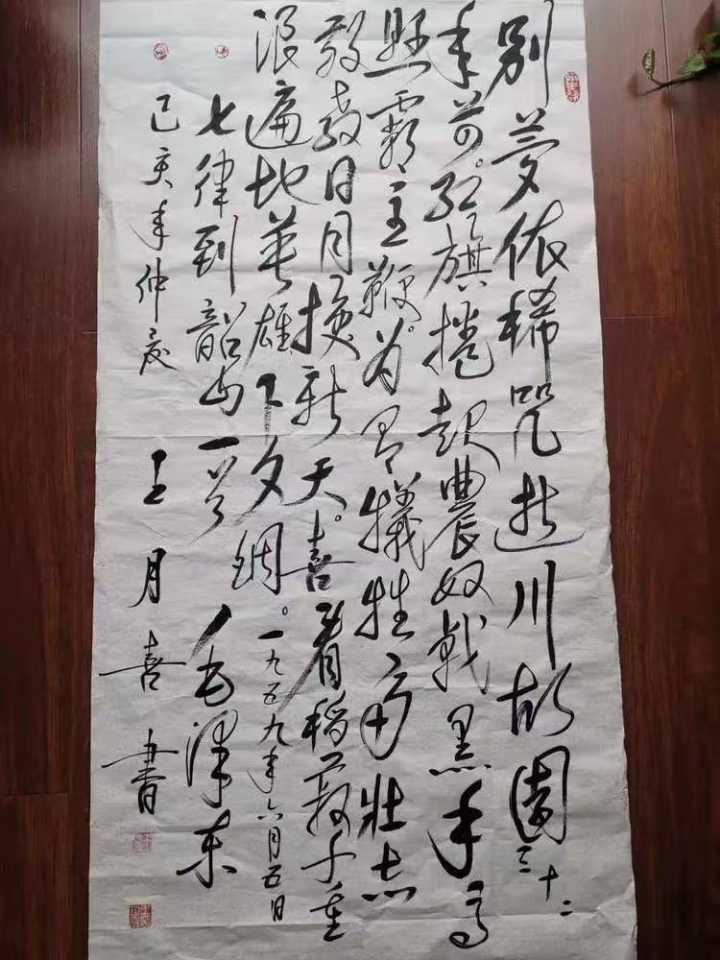 别梦依稀咒逝川故園三十二
年前。红旗捲起農奴戟黑手高
懸霸主鞭。为有犧牲多壯志
敢教日月换新天。喜看稻菽千重
浪遍地英雄下夕烟。一九五九年六月五日
七律到韶山一首 毛澤东
己亥年仲夏 王月喜書